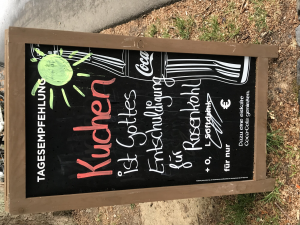 TAGESEMPFEHLUNG
Kuchen
Coca
ist Gottes
Entschuldigung
für Rosenkohl
+ 0,
für nur €
Dazu eine eiskalte
Coca-Cola genießen.